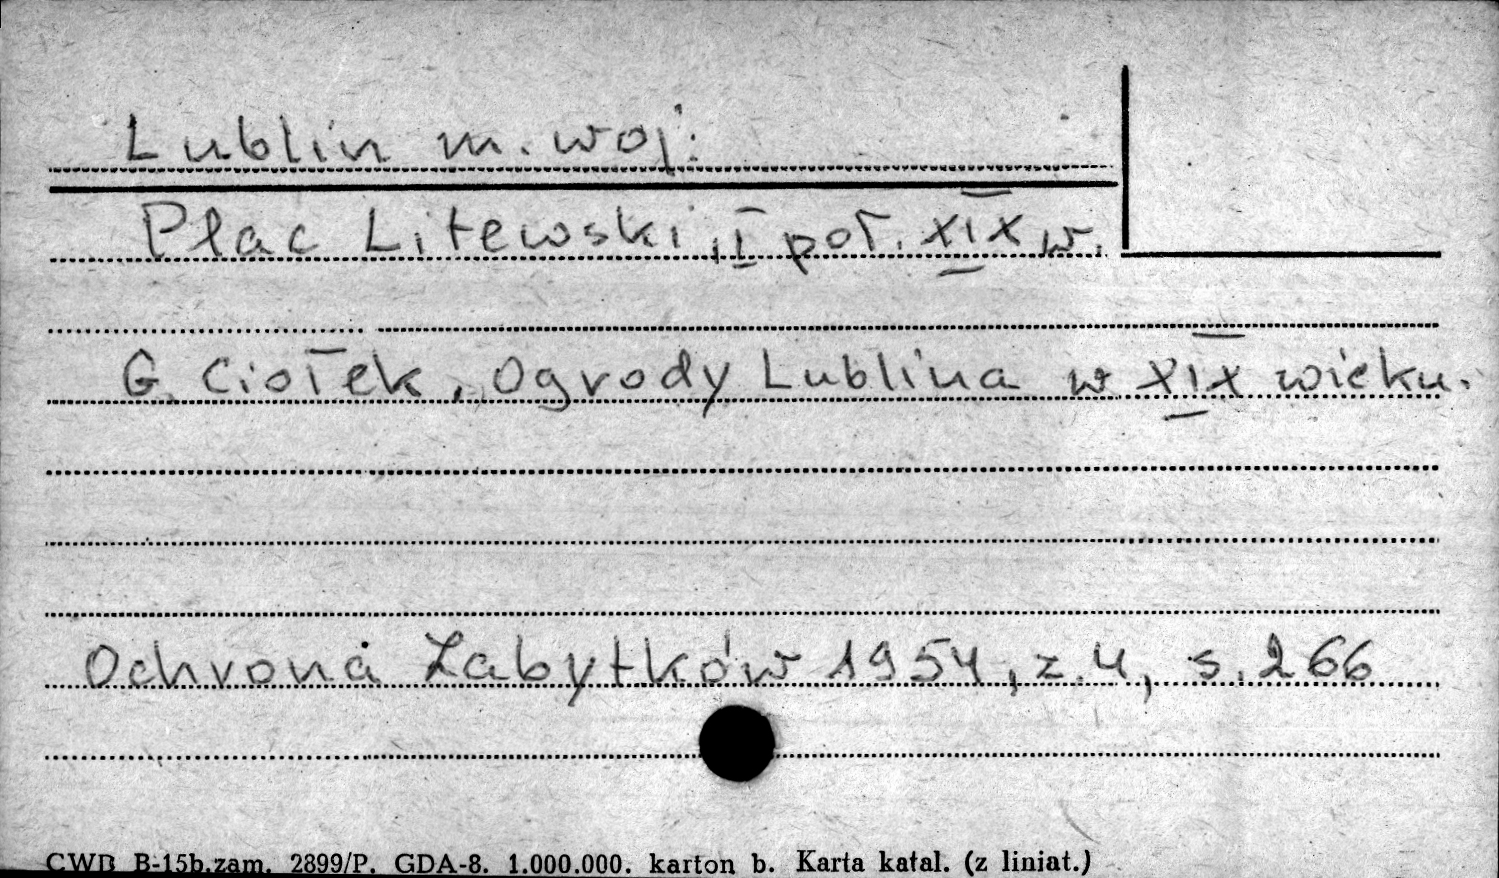 Lublin m. woj.
Plac Litewski, I poł. XIX w.
G. Ciołek, Ogrody Lublina w XIX wieku.
Ochrona Zabytków 1954, z. 4, s. 266
CWD B-15b.zam. 2899/P. GDA-8. 1.000.000. karton b. Karta katal. (z liniat.)